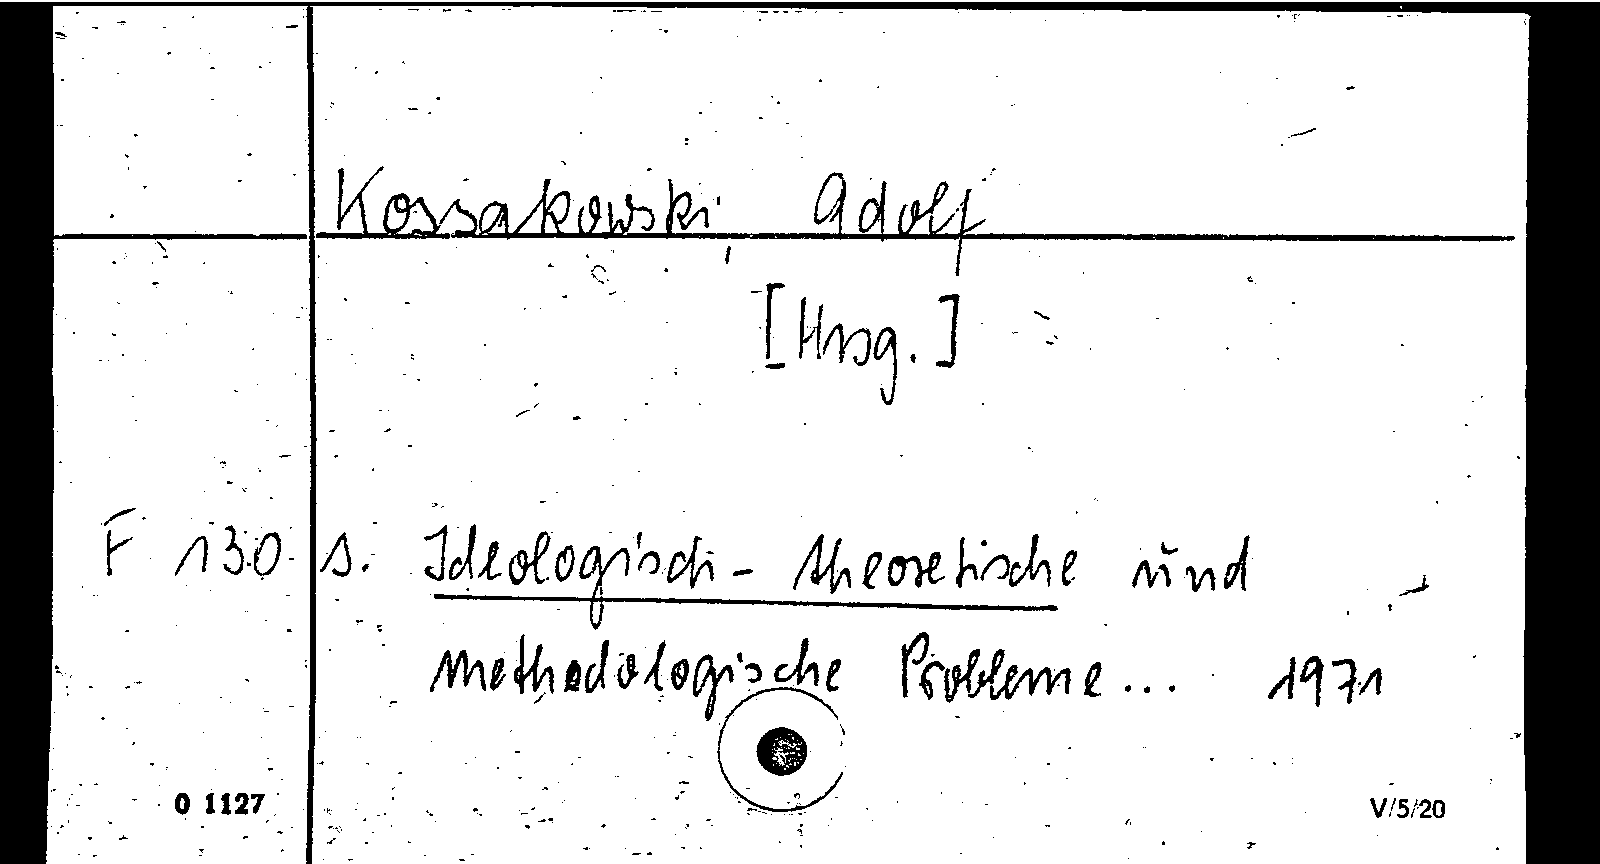 Kossakowski, Adolf
[Hrsg.]
F 130 s. Ideologisch-theoretische und
methodologische Probleme... 1971
O 1127
V/5/20